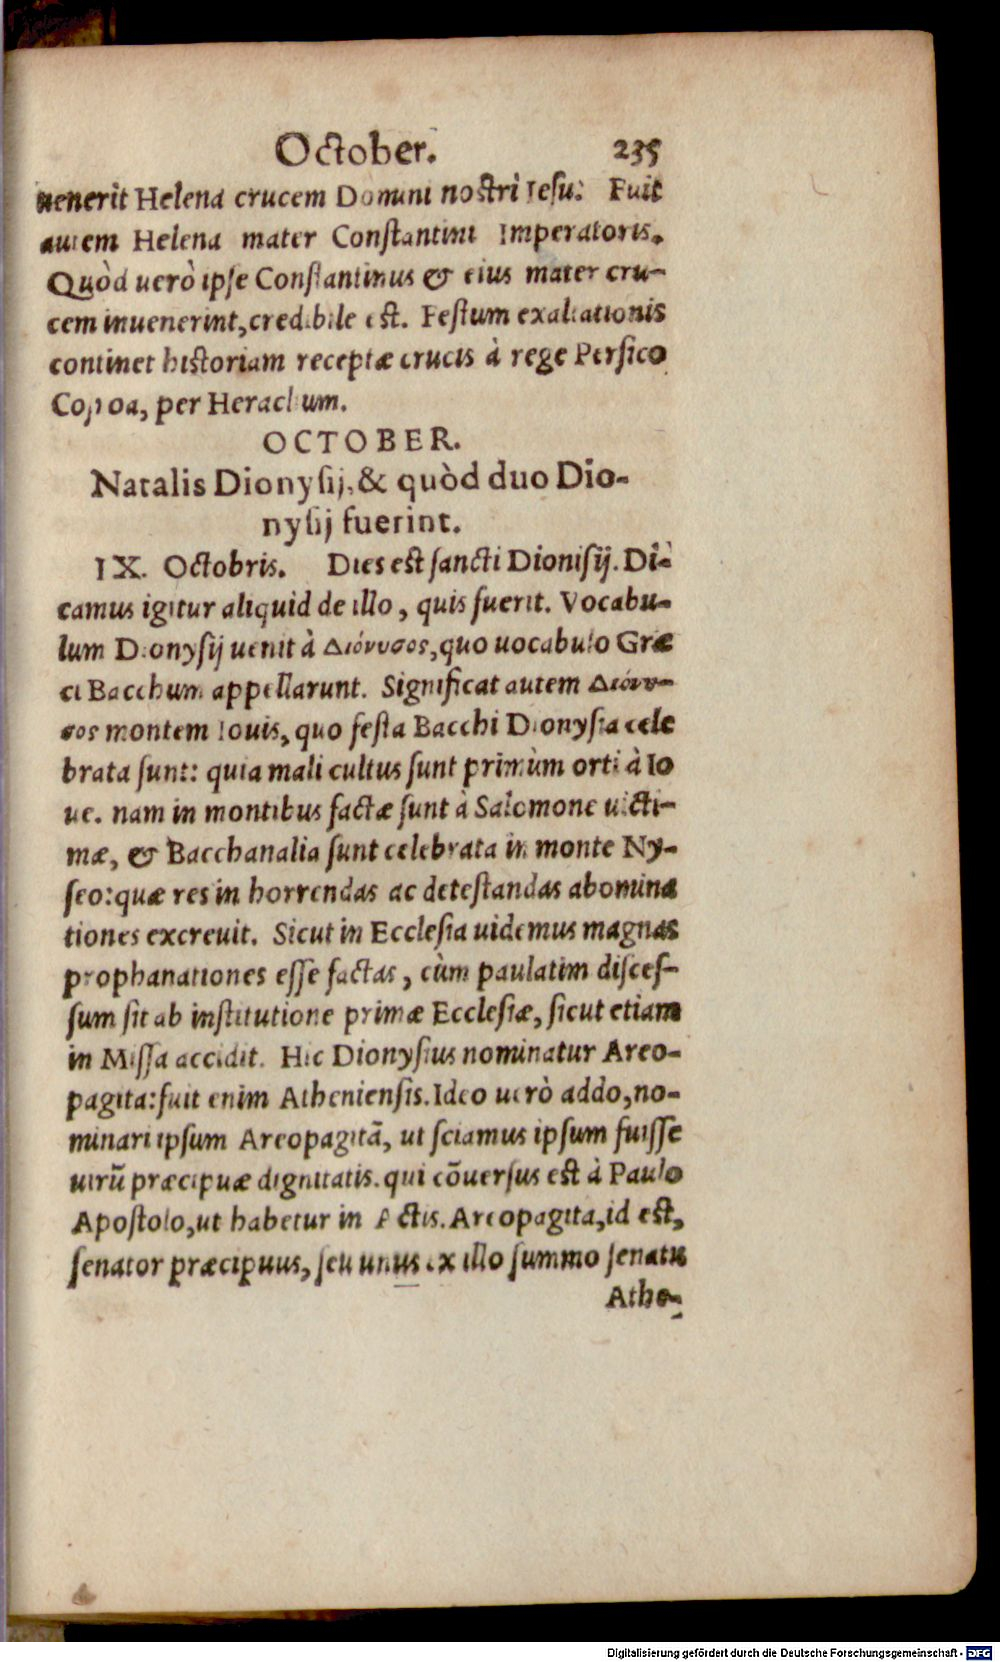 October. 235
uenerit Helena crucem Domini nostri Iesu: Fuit
autem Helena mater Constantini Imperatoris.
Quòd uerò ipse Constantinus & eius mater cru-
cem inuenerint, credibile est. Festum exaltationis
continet historiam receptæ crucis à rege Persico
per Heraclium.
OCTOBER.
Natalis Dionysij, & quòd duo Dio-
nysij fuerint.
IX. Octobris. Dies est sancti Dionisij. Di-
camus igitur aliquid de illo, quis fuerit. Vocabu-
lum Dionysij uenit à Διόνυσος, quo uocabulo Græ
ci Bacchum appellarunt. Significat autem Διόνυ-
σος montem Iouis, quo festa Bacchi Dionysia cele
brata sunt: quia mali cultus sunt primùm orti à Io
ue. nam in montibus factæ sunt à Salomone uicti-
mæ, & Bacchanalia sunt celebrata in monte Ny-
seo: quæ res in horrendas ac detestandas abomina
tiones excreuit. Sicut in Ecclesia uidemus magnas
prophanationes esse factas, cùm paulatim disces-
sum sit ab institutione primæ Ecclesiæ, sicut etiam
in Missa accidit. Hic Dionysius nominatur Areo-
pagita: fuit enim Atheniensis. Ideo uerò addo, no-
minari ipsum Areopagitã, ut sciamus ipsum fuisse
uirũ præcipuæ dignitatis. qui cõuersus est à Paulo
Apostolo, ut habetur in Actis. Areopagita, id est,
senator præcipuus, seu unus ex illo summo senatu
Athe-
Digitalisierung gefördert durch die Deutsche Forschungsgemeinschaft - DFG